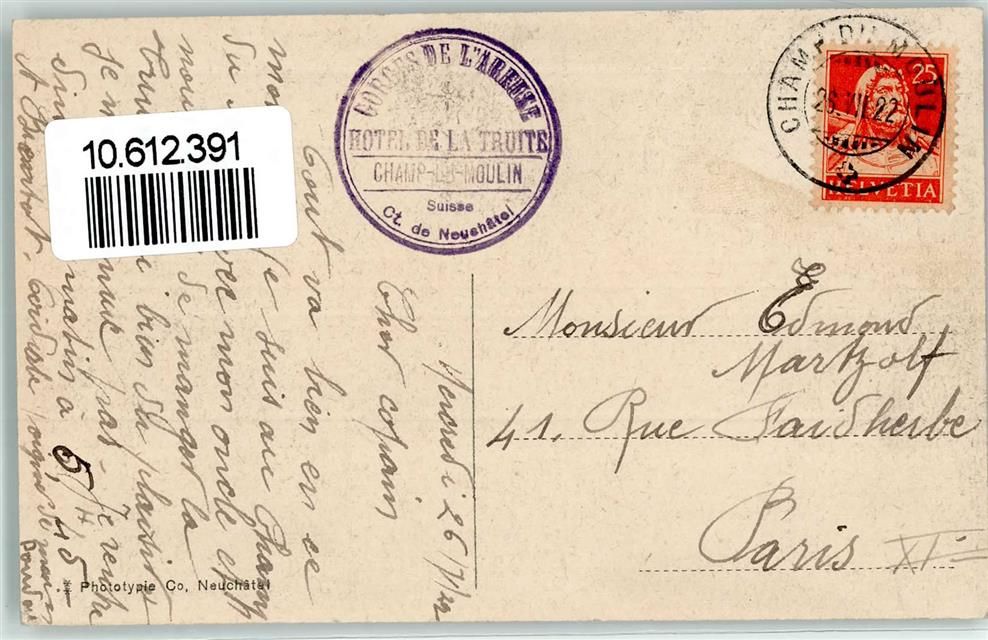 10.612.391
GORGES DE L'AREUSE
HOTEL DE LA TRUITE
CHAMP-DU-MOULIN
Suisse
Ct. de Neuchâtel
CHAMP DU MOULIN
22
25
HELVETIA
Mercredi 26/7/22
Cher copain
Tout va bien en ce
mo je suis au Champ
du avec mon oncle et
de manger la
bien du plaisir
Je pas. Je rentre
matin à 5
A bientôt. Cordiale poignée de main
Monsieur Edmond
Martzolf
41, Rue Faidherbe
Paris XI
Phototypie Co, Neuchâtel